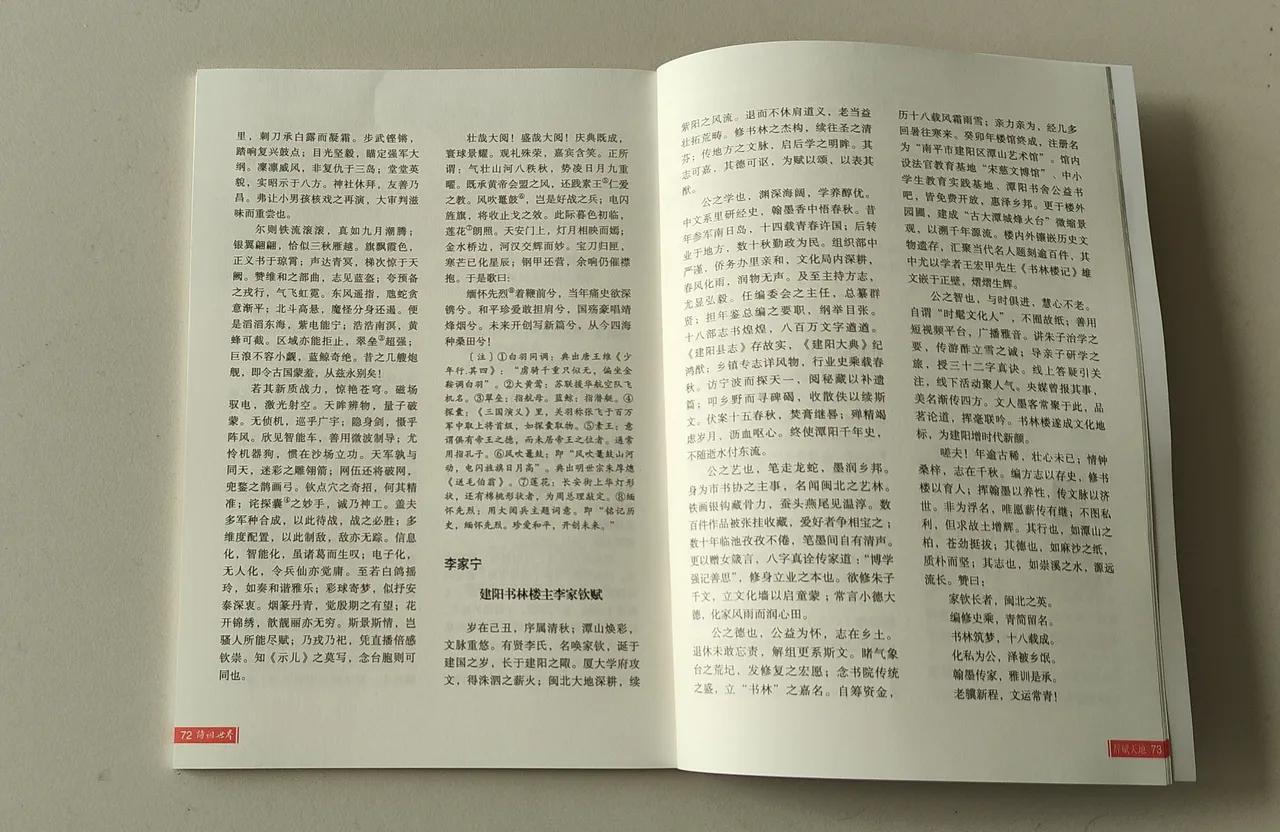 里，刺刀承白露而凝霜。步武铿锵，
踏响复兴鼓点；目光坚毅，瞄定强军大
纲。凛凛威风，非复仇于三岛；堂堂英
貌，实昭示于八方。神社休拜，友善乃
昌。弗让小男孩核戏之再演，大审判滋
味而重尝也。
尔则铁流滚滚，真如九月潮腾；
银翼翩翩，恰似三秋雁越。旗飘霞色，
正义书于琼霄；声达青冥，梯次惊于天
阙。赞维和之部曲，志见蓝盔；夸预备
之戎行，气飞虹霓。东风遥指，虺蛇贪
意渐平；北斗高悬，魔怪分身还遏。便
是滔滔东海，紫电能宁；浩浩南溟，黄
蜂可截。区域亦能拒止，翠垒③超强；
巨浪不容小觑，蓝鲸奇绝。昔之几艘炮
舰，即令古国蒙羞，从兹永别矣！
若其新质战力，惊艳苍穹。磁场
驭电，激光射空。天眸辨物，量子破
蒙。无侦机，巡乎广宇；隐身剑，慑乎
阵风。欣见智能车，善用微波制导；尤
怜机器狗，惯在沙场立功。天军孰与
同天，迷彩之雕翎箭；网伍还将破网，
兜鍪之鹊画弓。钦点穴之奇招，何其精
准；诧探囊④之妙手，诚乃神工。盖夫
多军种合成，以此待战，战之必胜；多
维度配置，以此制敌，敌亦无踪。信息
化，智能化，虽诸葛而生叹；电子化，
无人化，令兵仙亦觉庸。至若白鸽摇
玲，如奏和谐雅乐；彩球寄梦，似抒安
泰深衷。烟篆丹青，觉殷期之有望；花
开锦绣，歆靓丽亦无穷。斯景斯情，岂
骚人所能尽赋；乃戎乃祀，凭直播倍感
钦崇。知《示儿》之莫写，念台胞则可
同也。
壮哉大阅！盛哉大阅！庆典既成，
寰球景耀。观礼殊荣，嘉宾含笑。正所
谓：气壮山河八秩秋，势凌日月九重
曜。既承黄帝会盟之风，还践素王⑤仁爱
之教。风吹鼍鼓⑥，岂是好战之兵；电闪
旌旗，将收止戈之效。此际暮色初临，
莲花⑦朗照。天安门上，灯月相映而嫣；
金水桥边，河汉交辉而妙。宝刀归匣，
寒芒已化星辰；钢甲还营，余响仍催襟
抱。于是歌曰：
缅怀先烈⑧着鞭前兮，当年痛史欲深
镌兮。和平珍爱敢担肩兮，国殇豪唱靖
烽烟兮。未来开创写新篇兮，从今四海
种桑田兮！
〔注〕①白羽同调：典出唐王维《少
年行.其四》：“虏骑千重只似无，偏坐金
鞍调白羽”。②大黄莺：苏联援华航空队飞
机名。③翠垒：指航母。蓝鲸：指潜艇。④
探囊：《三国演义》里，关羽称张飞于百万
军中取上将首级，如探囊取物。⑤素王：意
谓俱有帝王之德，而未居帝王之位者。通常
用指孔子。⑥风吹鼍鼓：即“风吹鼍鼓山河
动，电闪旌旗日月高”。典出明世宗朱厚熜
《送毛伯翁》。⑦莲花：长安街上华灯形
状，还有棉桃形状者，为周总理敲定。⑧缅
怀先烈：用大阅兵主题词意。即“铭记历
史，缅怀先烈。珍爱和平，开创未来。”
李家宁
建阳书林楼主李家钦赋
岁在己丑，序属清秋；潭山焕彩，
文脉重悠。有贤李氏，名唤家钦，诞于
建国之岁，长于建阳之陬。厦大学府攻
文，得洙泗之薪火；闽北大地深耕，续
72 诗词世界
紫阳之风流。退而不休肩道义，老当益
壮拓荒畴。修书林之杰构，续往圣之清
芬；传地方之文脉，启后学之明眸。其
志可嘉，其德可讴，为赋以颂、以表其
猷。
公之学也，渊深海阔，学养醇优。
中文系里研经史，翰墨香中悟春秋。昔
年参军南日岛，十四载青春许国；后转
业于地方，数十秋勤政为民。组织部中
严谨，侨务办里亲和，文化局内深耕，
春风化雨，润物无声。及至主持方志，
尤显弘毅。任编委会之主任，总纂群
贤；担年鉴总编之要职，纲举目张。
十八部志书煌煌，八百万文字遒遒。
《建阳县志》存故实，《建阳大典》纪
鸿猷；乡镇专志详风物，行业史乘载春
秋。访宁波而探天一，阅秘藏以补遗
篇；叩乡野而寻碑碣，收散佚以续斯
文。伏案十五春秋，焚膏继晷；殚精竭
虑岁月，沥血呕心。终使潭阳千年史，
不随逝水付东流。
公之艺也，笔走龙蛇，墨润乡邦。
身为市书协之主事，名闻闽北之艺林。
铁画银钩藏骨力，蚕头燕尾见温淳。数
百件作品被张挂收藏，爱好者争相宝之；
数十年临池孜孜不倦，笔墨间自有清声。
更以赠女箴言，八字真诠传家道：“博学
强记善思”，修身立业之本也。欲修朱子
千文，立文化墙以启童蒙；常言小德大
德，化家风雨而润心田。
公之德也，公益为怀，志在乡土。
退休未敢忘责，解组更系斯文。睹气象
台之荒圮，发修复之宏愿；念书院传统
之盛，立“书林”之嘉名。自筹资金，
历十八载风霜雨雪；亲力亲为，经几多
回暑往寒来。癸卯年楼馆终成，注册名
为“南平市建阳区潭山艺术馆”。馆内
设法官教育基地“宋慈文博馆”、中小
学生教育实践基地、潭阳书舍公益书
吧，皆免费开放，惠泽乡邦。更于楼外
园圃，建成“古大潭城烽火台”微缩景
观，以溯千年源流。楼内外镶嵌历史文
物遗存，汇聚当代名人题刻逾百件，其
中尤以学者王宏甲先生《书林楼记》雄
文嵌于正壁，熠熠生辉。
公之智也，与时俱进，慧心不老。
自谓“时髦文化人”，不囿故纸；善用
短视频平台，广播雅音。讲朱子治学之
要，传游酢立雪之诚；导亲子研学之
旅，授三十二字真诀。线上答疑引关
注，线下活动聚人气。央媒曾报其事，
美名渐传四方。文人墨客常聚于此，品
茗论道，挥毫联吟。书林楼遂成文化地
标，为建阳增时代新颜。
嗟夫！年逾古稀，壮心未已；情钟
桑梓，志在千秋。编方志以存史，修书
楼以育人；挥翰墨以养性，传文脉以济
世。非为浮名，唯愿薪传有继；不图私
利，但求故土增辉。其行也，如潭山之
柏，苍劲挺拔；其德也，如麻沙之纸，
质朴而坚；其志也，如崇溪之水，源远
流长。赞曰：
家钦长者，闽北之英。
编修史乘，青简留名。
书林筑梦，十八载成。
化私为公，泽被乡氓。
翰墨传家，雅训是承。
老骥新程，文运常青！
辞赋天地 73